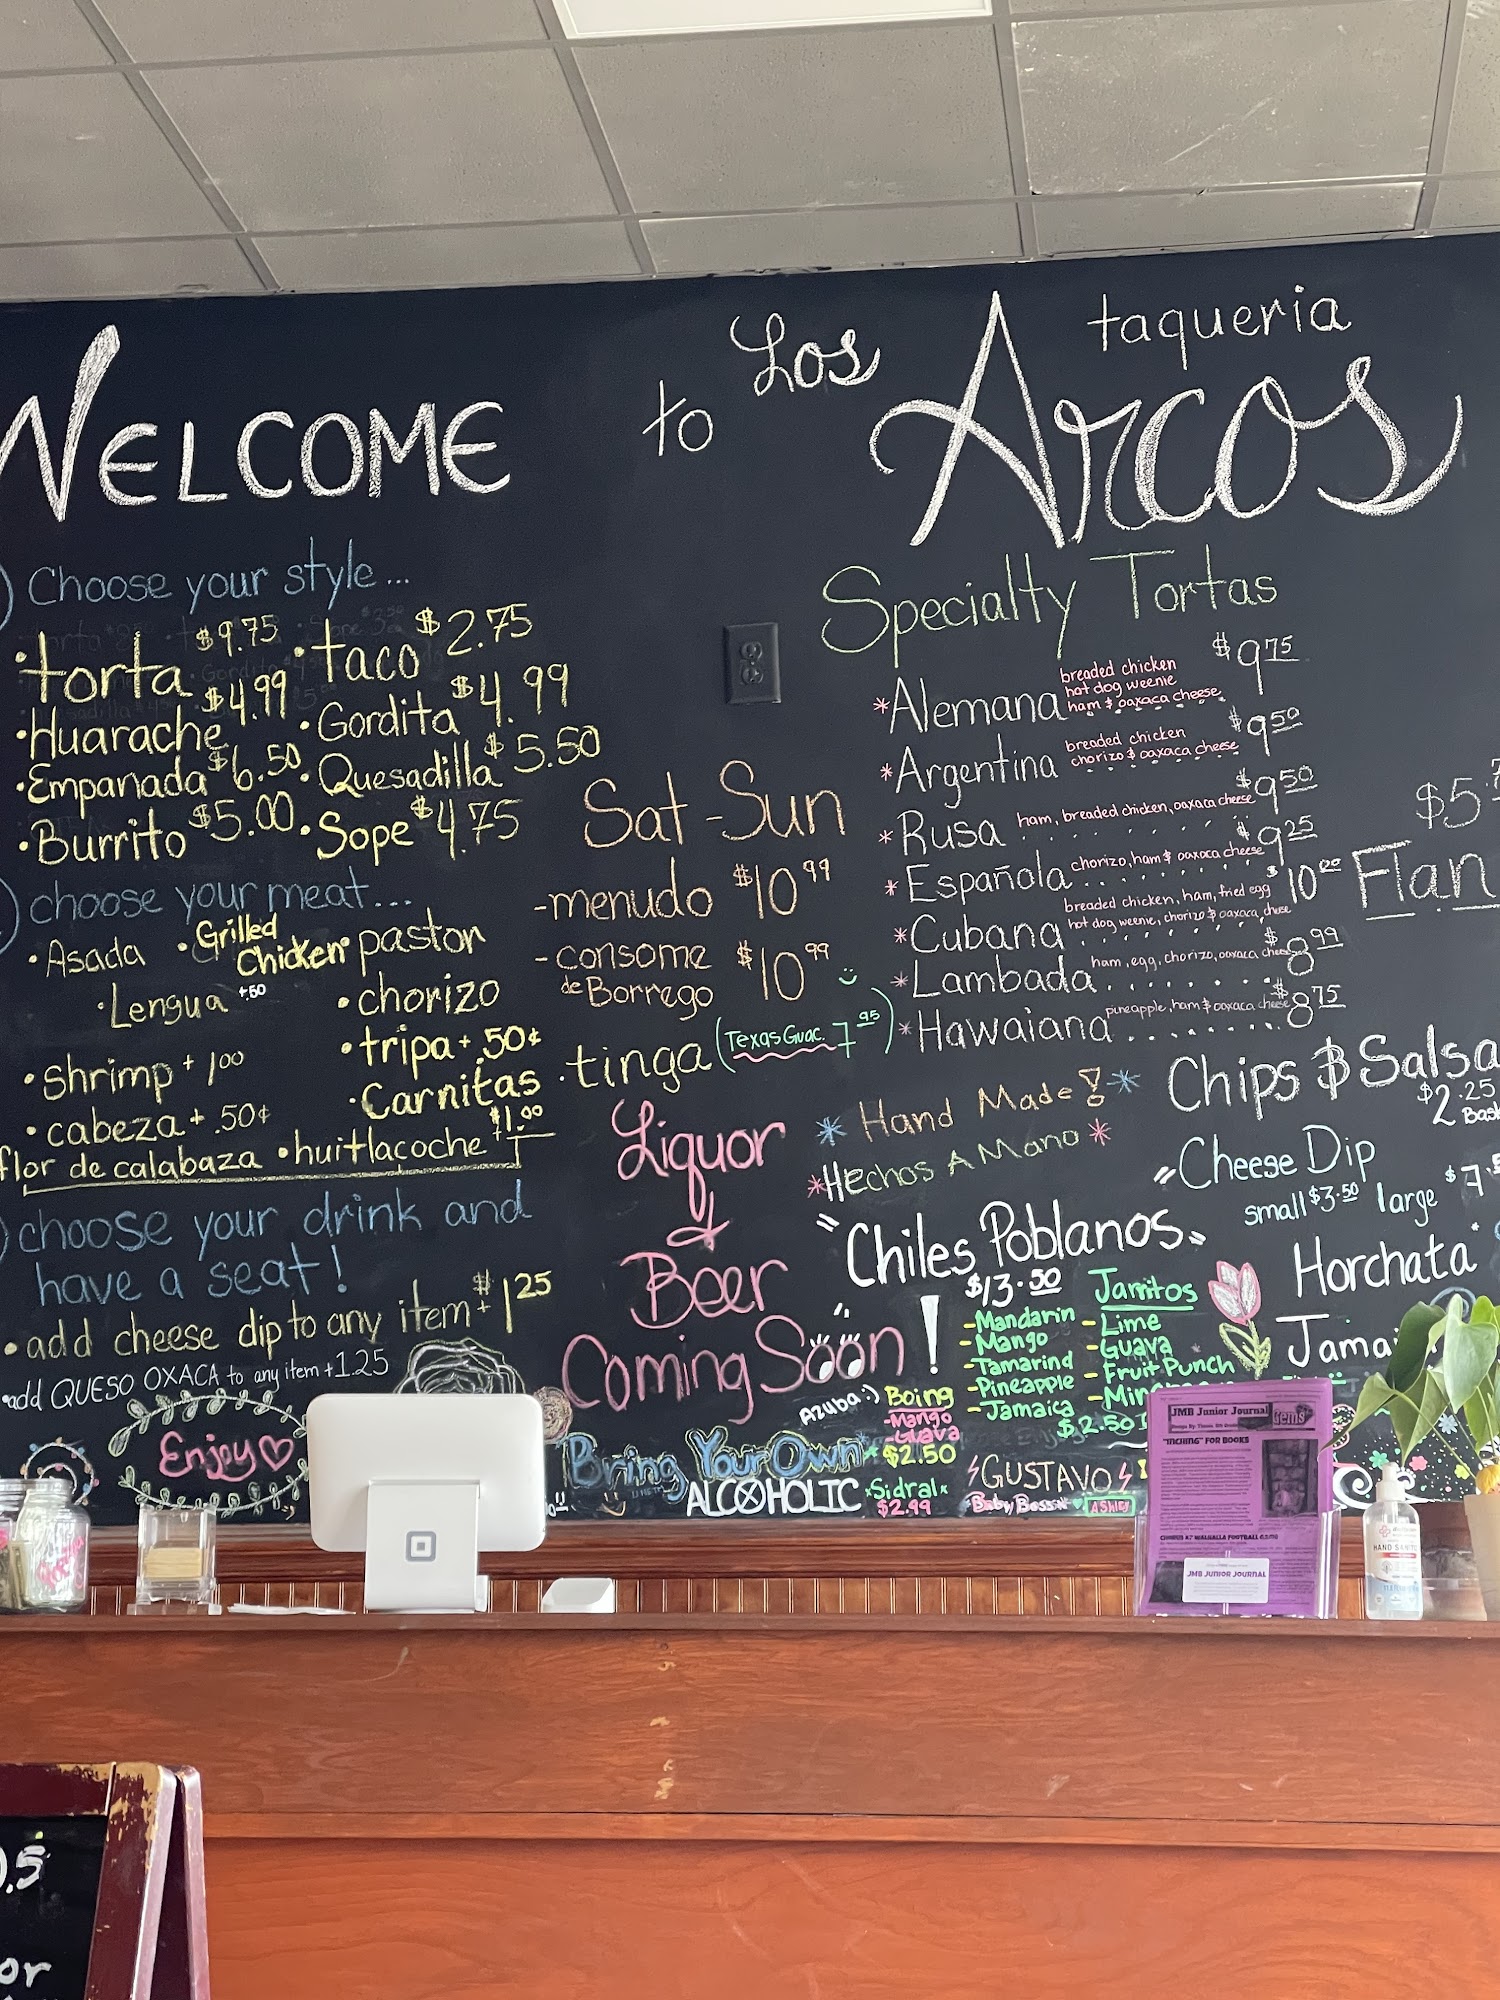 WELCOME to Los Arcos taqueria
Choose your style...
• torta $9.75 • taco $2.75
• Huarache $4.99 • Gordita $4.99
• Empanada $6.50 • Quesadilla $5.50
• Burrito $5.00 • Sope $4.75
choose your meat...
• Asada • Grilled Chicken • pastor
• Lengua +.50 • chorizo
• shrimp + 1.00 • tripa + .50¢
• cabeza + .50¢ • Carnitas • tinga
flor de calabaza • huitlacoche + $1.00
choose your drink and
have a seat!
• add cheese dip to any item + $1.25
• add QUESO OXACA to any item + 1.25
Enjoy
Sat - Sun
- menudo $10.99
- consome de Borrego $10.99
(Texas Guac. 7.95)
Liquor
&
Beer
Coming Soon!
Bring Your Own
ALCOHOLIC
Specialty Tortas
* Alemana breaded chicken hot dog weenie ham & oaxaca cheese $9.75
* Argentina breaded chicken chorizo & oaxaca cheese $9.50
* Rusa ham, breaded chicken, oaxaca cheese $9.50
* Española chorizo, ham & oaxaca cheese $9.25
* Cubana breaded chicken, ham, fried egg hot dog weenie, chorizo & oaxaca cheese $10
* Lambada ham, egg, chorizo, oaxaca cheese $8.99
* Hawaiana pineapple, ham & oaxaca cheese $8.75
* Hand Made! *
* Hechos A Mano *
"Chiles Poblanos"
$13.50
Jarritos
- Mandarin - Lime
- Mango - Guava
- Tamarind - Fruit Punch
- Pineapple
- Jamaica $2.50
Azuba :)
Boing
- Mango
- Guava
$2.50
Sidral
$2.99
GUSTAVO
Baby Boss
Ashley
Flan
Chips & Salsa
$2.25
"Cheese Dip
small $3.50 large
Horchata
JMB Junior Journal
Gems
"INCHING" FOR BOOKS
CHORUS AT WALHALLA FOOTBALL GAME
JMB JUNIOR JOURNAL
HAND SANITI